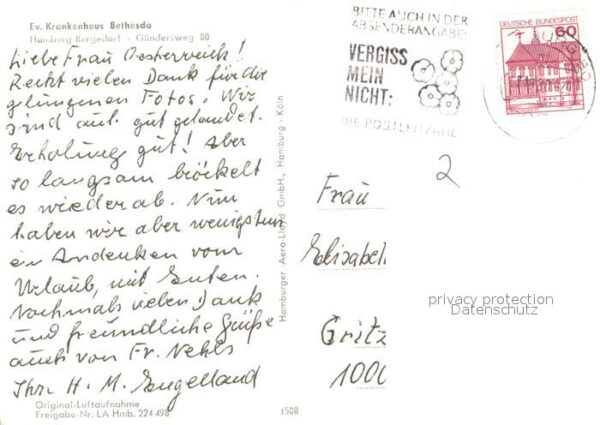 Ev. Krankenhaus Bethesda
Hamburg-Bergedorf - Glindersweg 80
Liebe Frau Oesterreich!
Recht vielen Dank für die
gelungenen Fotos. Wir
sind auch gut gelandet.
Erholung gut! Aber
so langsam bröckelt
es wieder ab. Nun
haben wir aber wenigstens
ein Andenken vom
Urlaub, mit Enten.
Nochmals vielen Dank
und freundliche Grüße
auch von Fr. Nehls
Ihr H. M. Engelland
Original-Luftaufnahme
Freigabe-Nr. LA Hmb. 224 498
1508
Hamburger Aero-Lloyd GmbH., Hamburg - Köln
BITTE AUCH IN DER
ABSENDERANGABE:
VERGISS
MEIN
NICHT:
DIE POSTLEITZAHL
DEUTSCHE BUNDESPOST
60
2
Frau
Elisabet
Gritz
1000
privacy protection
Datenschutz